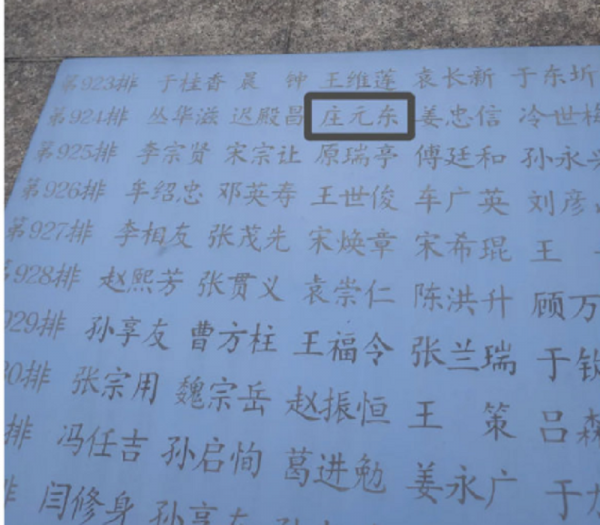 第923排 于桂香 晨 钟 王维莲 袁长新 于东圻
第924排 丛华滋 迟殿昌 庄元东 姜忠信 冷世梅
第925排 李宗贤 宋宗让 原瑞亭 傅廷和 孙永
第926排 车绍忠 邓英寿 王世俊 车广英 刘彦
第927排 李相友 张茂先 宋焕章 宋希琨 王
928排 赵熙芳 张贯义 袁崇仁 陈洪升 顾万
929排 孙享友 曹方柱 王福令 张兰瑞 于钦
0排 张宗用 魏宗岳 赵振恒 王 策 吕森
排 冯任吉 孙启恂 葛进勉 姜永广 于
闫修身 孙享友